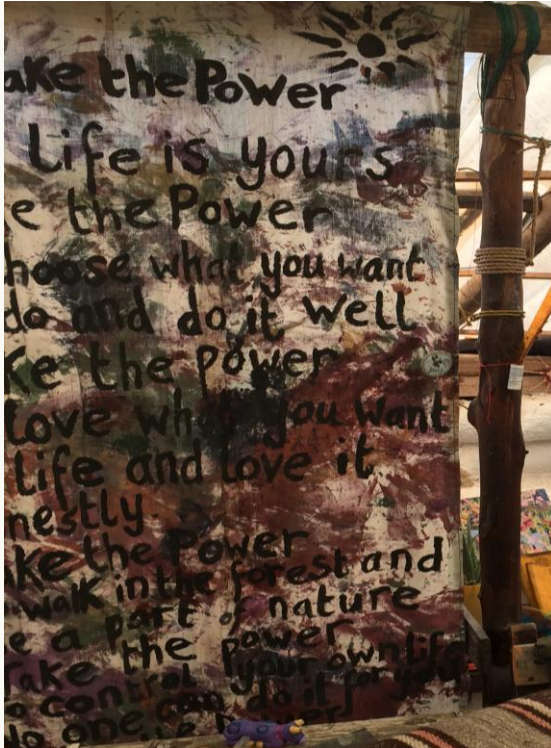 ake the Power
Life is yours
e the Power
hoose what you want
do and do it well
ke the power
Love what you want
life and love it
nestly.
ake the Power
walk in the forest and
e a part of nature
Take the power
o control your own life
No one can do it for you
power